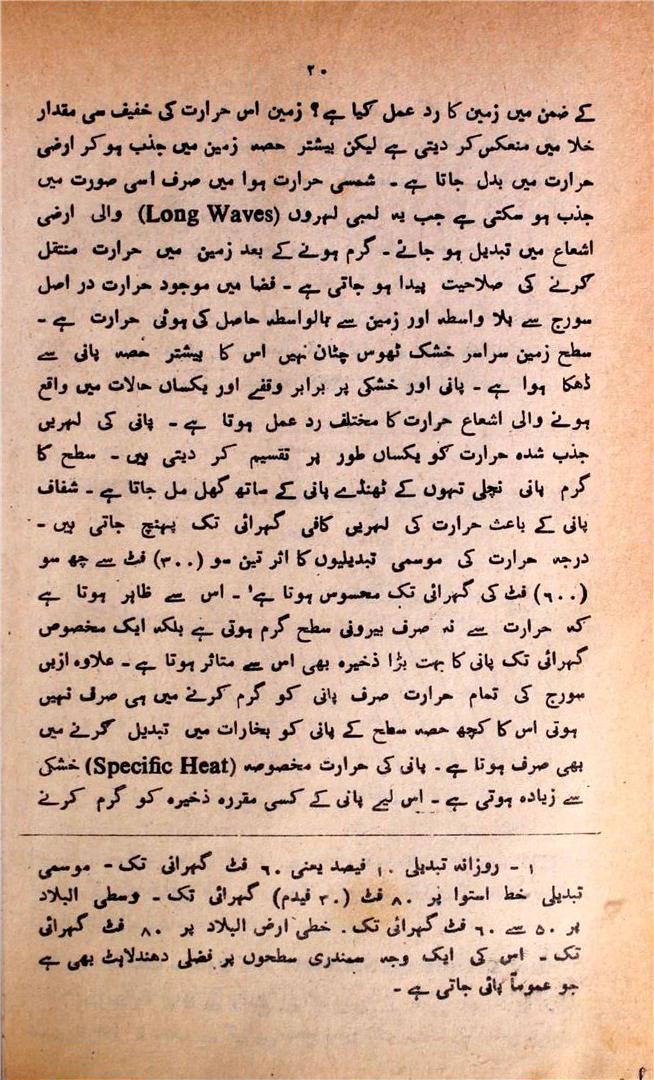 ۲۰
کے ضمن میں زمین کا رد عمل کیا ہے؟ زمین اس حرارت کی خفیف سی مقدار
خلا میں منعکس کر دیتی ہے لیکن بیشتر حصہ زمین میں جذب ہو کر ارضی
حرارت میں بدل جاتا ہے ۔ شمسی حرارت ہوا میں صرف اسی صورت میں
جذب ہو سکتی ہے جب یہ لمبی لہروں (Long Waves) والی ارضی
اشعاع میں تبدیل ہو جائے ۔ گرم ہونے کے بعد زمین میں حرارت منتقل
کرنے کی صلاحیت پیدا ہو جاتی ہے ۔ فضا میں موجود حرارت در اصل
سورج سے بلا واسطہ اور زمین سے بالواسطہ حاصل کی ہوئی حرارت ہے ۔
سطح زمین سراسر خشک ٹھوس چٹان نہیں اس کا بیشتر حصہ پانی سے
ڈھکا ہوا ہے ۔ پانی اور خشکی پر برابر وقفے اور یکساں حالات میں واقع
ہونے والی اشعاع حرارت کا مختلف رد عمل ہوتا ہے ۔ پانی کی لہریں
جذب شدہ حرارت کو یکساں طور پر تقسیم کر دیتی ہیں ۔ سطح کا
گرم پانی نچلی تہوں کے ٹھنڈے پانی کے ساتھ گھل مل جاتا ہے ۔ شفاف
پانی کے باعث حرارت کی لہریں کافی گہرائی تک پہنچ جاتی ہیں ۔
درجہ حرارت کی موسمی تبدیلیوں کا اثر تین سو (۳۰۰) فٹ سے چھ سو
(۶۰۰) فٹ کی گہرائی تک محسوس ہوتا ہے۱ ۔ اس سے ظاہر ہوتا ہے
کہ حرارت سے نہ صرف بیرونی سطح گرم ہوتی ہے بلکہ ایک مخصوص
گہرائی تک پانی کا بہت بڑا ذخیرہ بھی اس سے متاثر ہوتا ہے ۔ علاوہ ازیں
سورج کی تمام حرارت صرف پانی کو گرم کرنے میں ہی صرف نہیں
ہوتی اس کا کچھ حصہ سطح کے پانی کو بخارات میں تبدیل کرنے میں
بھی صرف ہوتا ہے ۔ پانی کی حرارت مخصوصہ (Specific Heat) خشکی
سے زیادہ ہوتی ہے ۔ اس لیے پانی کے کسی مقررہ ذخیرہ کو گرم کرنے
۱ ۔ روزانہ تبدیلی ۱۰ فیصد یعنی ۶۰ فٹ گہرائی تک ۔ موسمی
تبدیلی خط استوا پر ۸۰ فٹ (۳۰ فیدم) گہرائی تک ۔ وسطی البلاد
پر ۵۰ سے ۶۰ فٹ گہرائی تک ۔ خطی ارض البلاد پر ۸۰ فٹ گہرائی
تک ۔ اس کی ایک وجہ سمندری سطحوں پر فضلی دھندلاہٹ بھی ہے
جو عموماً پائی جاتی ہے ۔